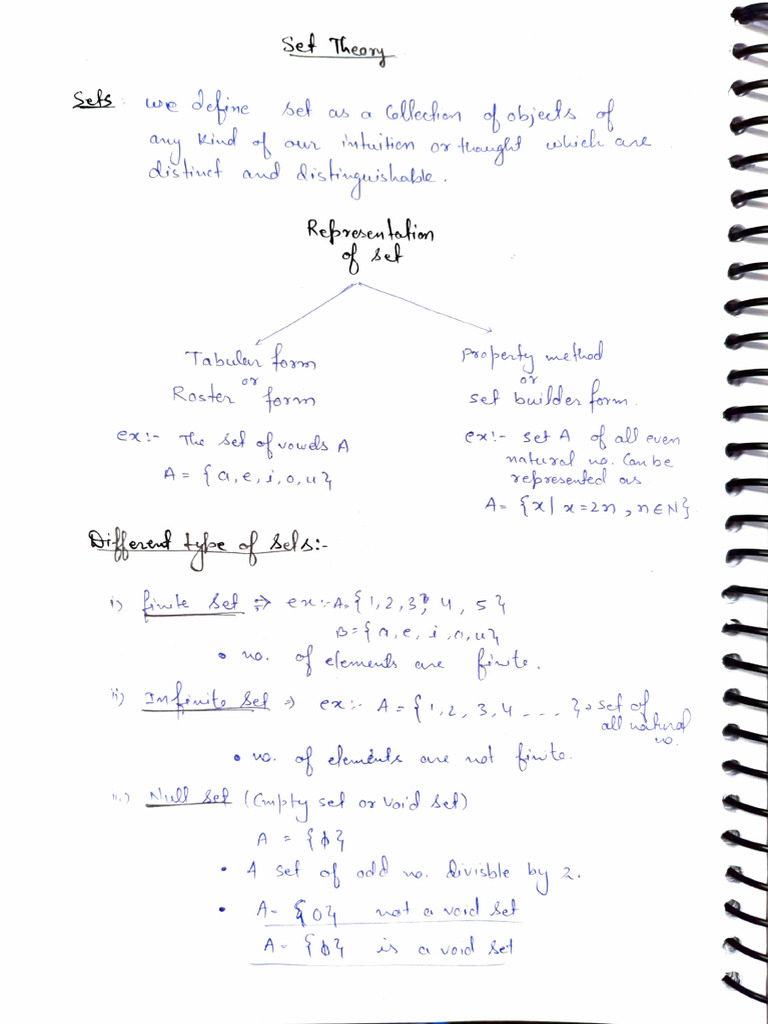 Set Theory
Sets: we define set as a collection of objects of
any kind of our intuition or thought which are
distinct and distinguishable.
Representation
of set
Tabular form
or
Roster form
ex:- The set of vowels A
A = {a, e, i, o, u}
property method
or
set builder form.
ex:- set A of all even
natural no. can be
represented as
A = {x | x = 2n, n ∈ N}
Different type of sets:-
i) finite set ⇒ ex:- A = {1, 2, 3, 4, 5}
B = {a, e, i, o, u}
• no. of elements are finite.
ii) Infinite set ⇒ ex:- A = {1, 2, 3, 4 - - - } → set of
all natural
no.
• no. of elements are not finite.
iii) Null set (Empty set or void set)
A = {ϕ}
• A set of odd no. divisble by 2.
• A = {0} not a void set
A = {ϕ} is a void set